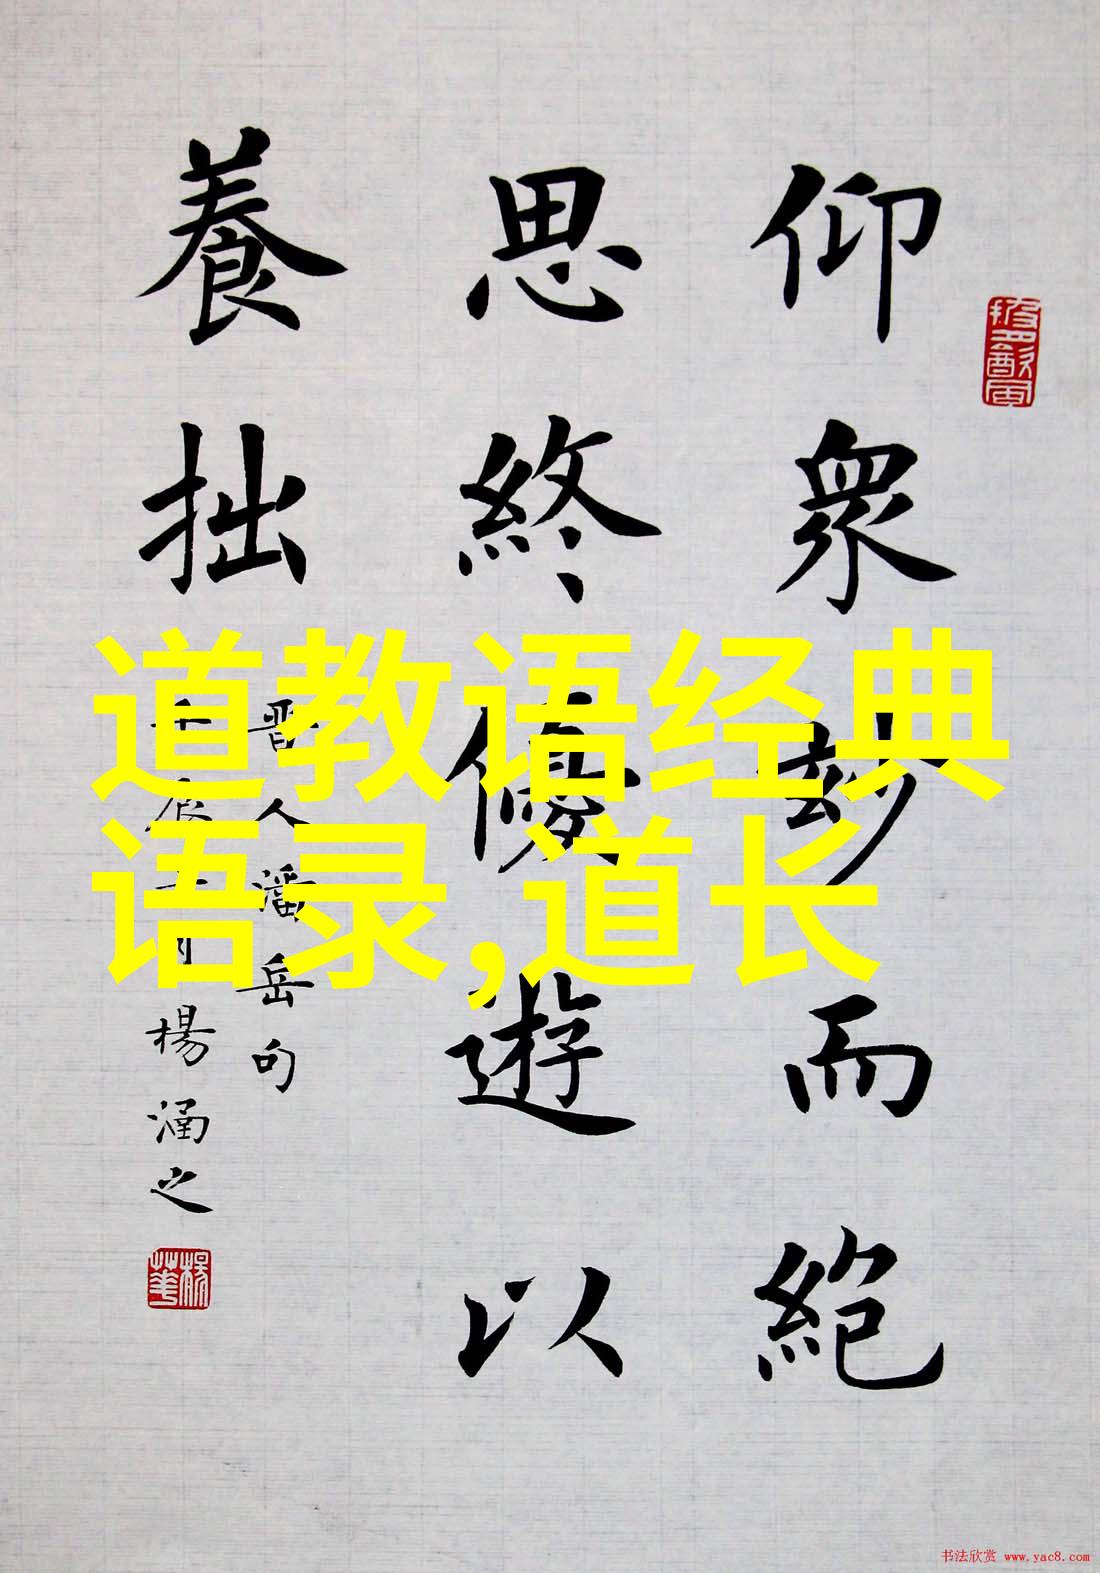 仰衆妙而絶
思終優遊以
養拙
晋人潘岳句
楊涵之
道教语经典
语录,道长
书法欣赏 www.yac8.com